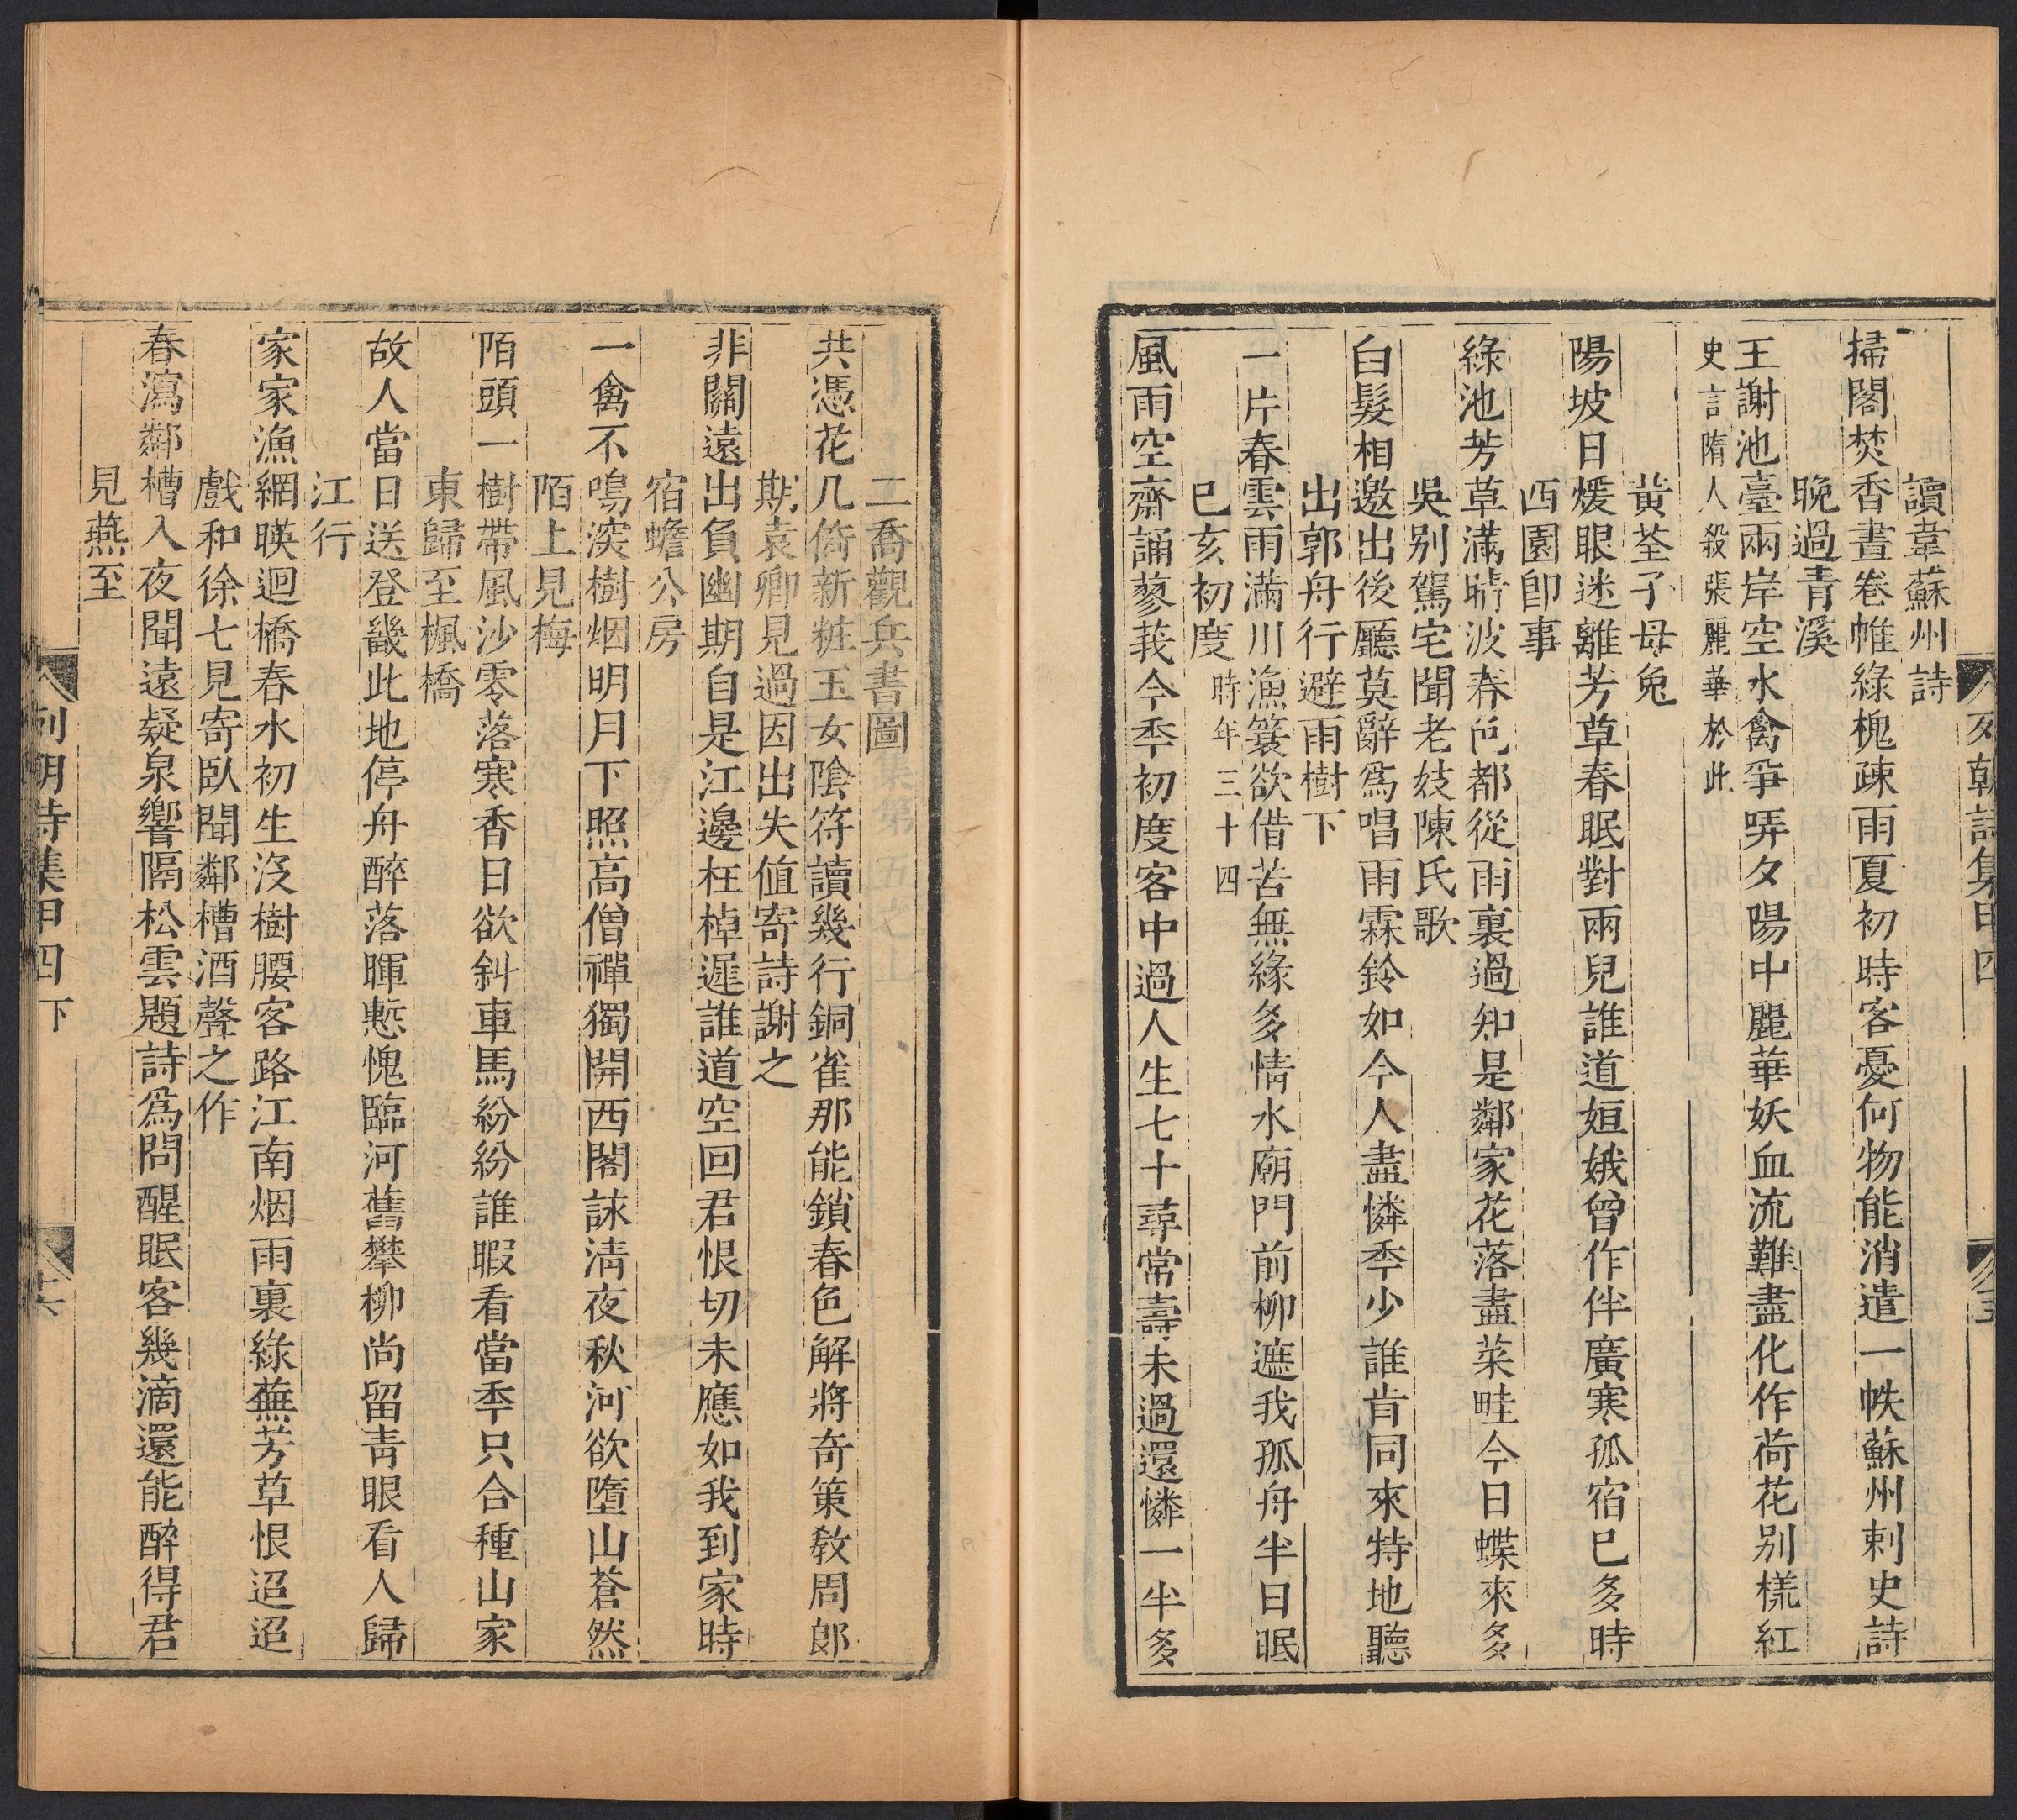 讀韋蘇州詩
掃閣焚香晝卷帷綠槐疎雨夏初時客憂何物能消遣一帙蘇州刺史詩
晩過青溪
王謝池臺兩岸空水禽爭哢夕陽中麗華妖血流難盡化作荷花别樣紅
史言隋人殺張麗華於此
黄荃子母兔
陽坡日煖眼迷離芳草春眠對兩兒誰道姮娥曾作伴廣寒孤宿已多時
西園卽事
綠池芳草滿晴波春色都從雨裏過知是鄰家花落盡菜畦今日蝶來多
吳别駕宅聞老妓陳氏歌
白髮相邀出後廳莫辭爲唱雨霖鈴如今人盡憐秊少誰肯同來特地聽
出郭舟行避雨樹下
一片春雲雨滿川漁簑欲借苦無緣多情水廟門前柳遮我孤舟半日眠
已亥初度時年三十四
風雨空齋誦蓼莪今秊初度客中過人生七十尋常壽未過還憐一半多
列朝詩集甲四
二喬觀兵書圖
共憑花几倚新粧玉女陰符讀幾行銅雀那能鎖春色解將奇策敎周郞
期袁卿見過因出失値寄詩謝之
非關遠出負幽期自是江邊枉棹遲誰道空回君恨切未應如我到家時
宿蟾公房
一禽不鳴深樹烟明月下照高僧禪獨開西閣誄淸夜秋河欲墮山蒼然
陌上見梅
陌頭一樹帶風沙零落寒香日欲斜車馬紛紛誰暇看當秊只合種山家
東歸至楓橋
故人當日送登畿此地停舟醉落暉慙愧臨河舊攀柳尚留靑眼看人歸
江行
家家漁網暎迴橋春水初生沒樹腰客路江南烟雨裏綠蕪芳草恨迢迢
戲和徐七見寄臥聞鄰槽酒聲之作
春瀉鄰槽入夜聞遠疑泉響隔松雲題詩爲問醒眠客幾滴還能醉得君
見燕至
列朝詩集甲四下